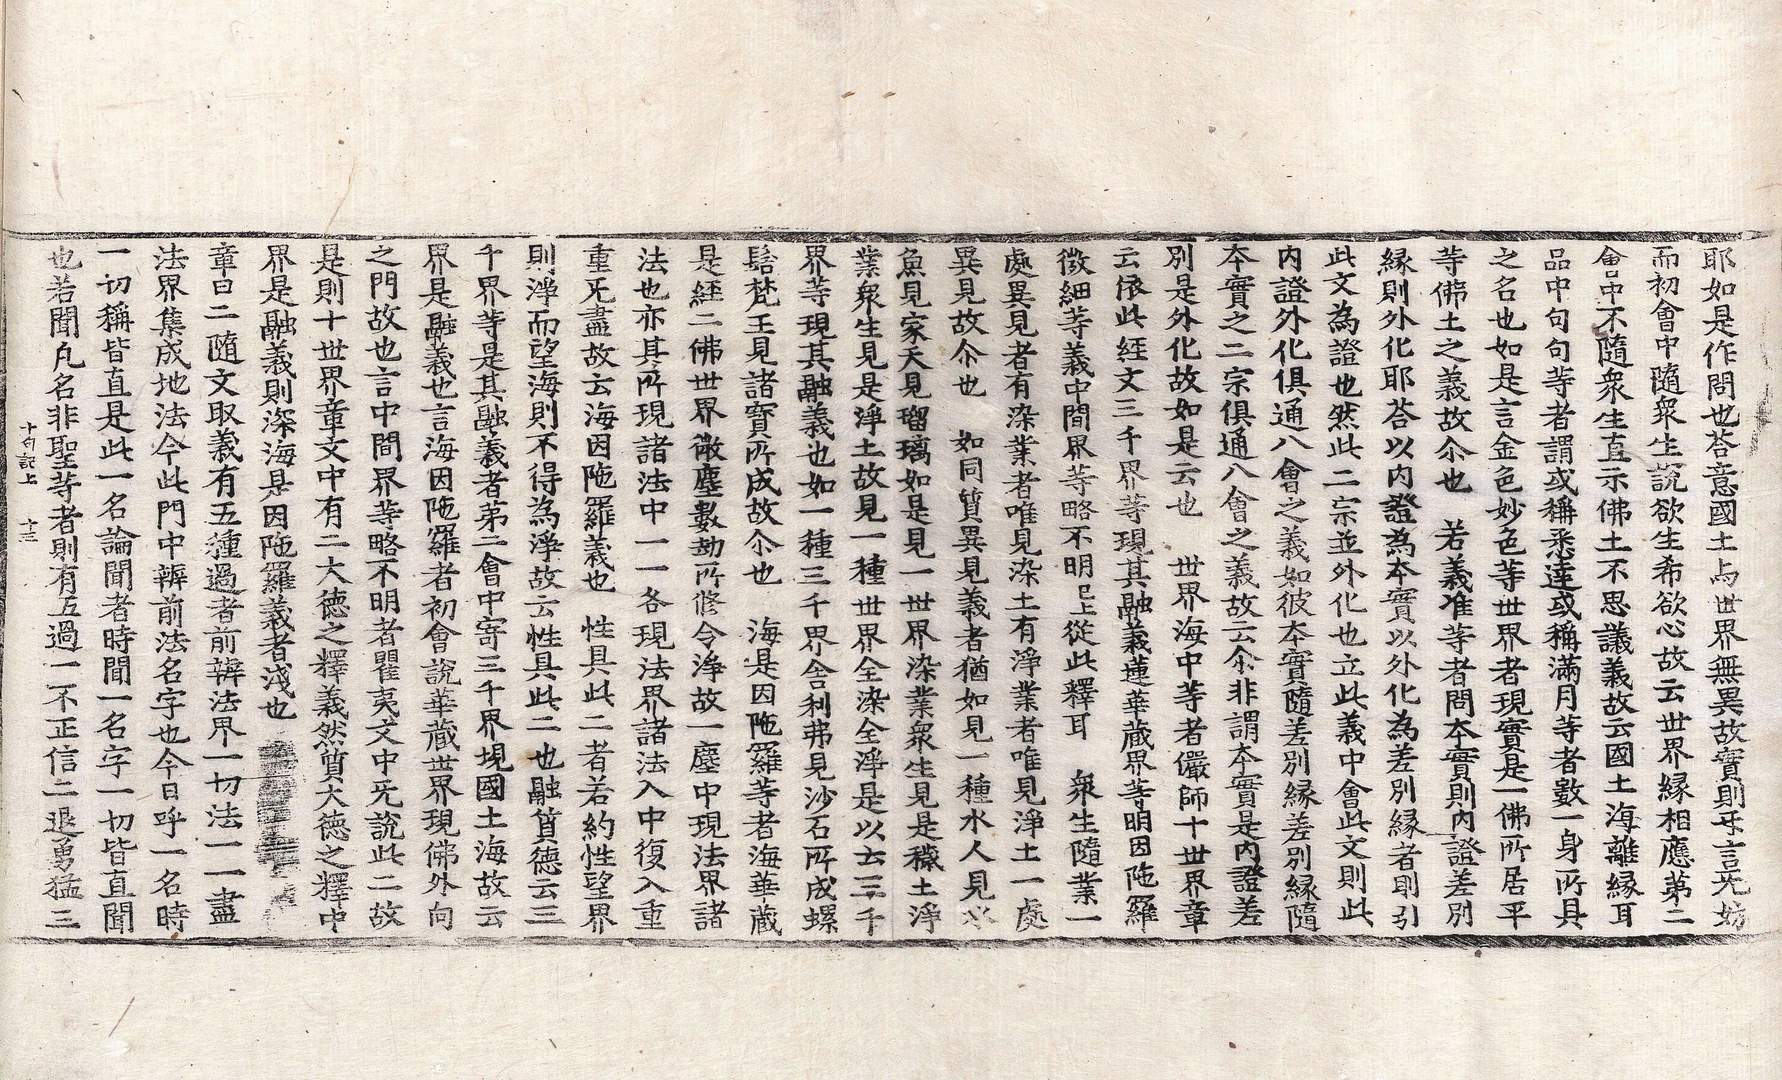 耶如是作問也荅意國土与世界無異故實則示言无妨
而初會中隨衆生說欲生希欲心故云世界縁相應苐二
會中不隨衆生直示佛土不思議義故云國土海離縁耳
品中句句等者謂或稱悉達或稱滿月等者數一身所具
之名也如是言金色妙色等世界者現實是一佛所居平
等佛土之義故尒也　若義准等者問本實則內證差別
縁則外化耶荅以內證為本實以外化為差別縁者則引
此文為證也然此二宗並外化也立此義中會此文則此
內證外化俱通八會之義如彼本實隨差別縁差別縁隨
本實之二宗俱通八會之義故云尒非謂本實是內證差
別是外化故如是云也　世界海中等者儼師十世界章
云依此経文三千界等現其融義蓮華蔵界等明因陁羅
微細等義中間界等略不明已上從此釋耳　衆生隨業一
處異見者有染業者唯見染土有淨業者唯見淨土一處
異見故尒也　如同質異見義者猶如見一種水人見水
魚見家天見瑠璃如是見一世界染業衆生見是穢土淨
業衆生見是淨土故見一種世界全染全淨是以云三千
界等現其融義也如一種三千界舍利弗見沙石所成螺
髻梵王見諸寳所成故尒也　海是因陁羅等者海華蔵
是経二佛世界微塵數劫所修令淨故一塵中現法界諸
法也亦其所現諸法中一一各現法界諸法入中復入重
重无盡故云海因陁羅義也　性具此二者若約性望界
則淨而望海則不得為淨故云性具此二也融質德云三
千界等是其融義者苐二會中寄三千界現國土海故云
界是融義也言海因陁羅者初會說華蔵世界現佛外向
之門故也言中間界等略不明者瞿夷文中旡說此二故
是則十世界章文中有二大德之釋義然質大德之釋中
界是融義則深海是因陁羅義者淺也
章曰二隨文取義有五種過者前辨法界一切法一一盡
法界集成地法今此門中辨前法名字也今日呼一名時
一切稱皆直是此一名論聞者時聞一名字一切皆直聞
也若聞凡名非聖等者則有五過一不正信二退勇猛三
十句記上　十三